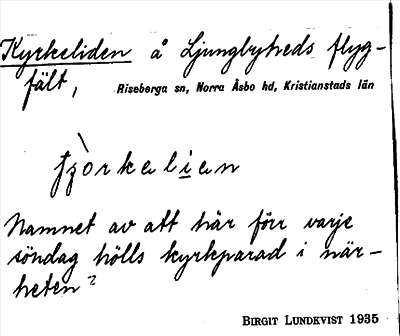 Kyrkeliden å Ljungbyheds flyg-
fält, Riseberga sn, Norra Åsbo hd, Kristianstads län
Namnet av att här förr varje
söndag hölls kyrkparad i när-
heten?
BIRGIT LUNDKVIST 1935